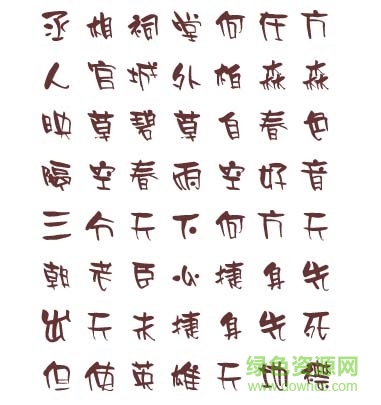 丞相祠堂何在方
人官城外柏森森
映草碧草自春色
隔空春雨空好音
三分天下何方天
朝老臣心捷身先
出天未捷身先死
但使英雄天地襟
绿色资源网
www.downcc.com